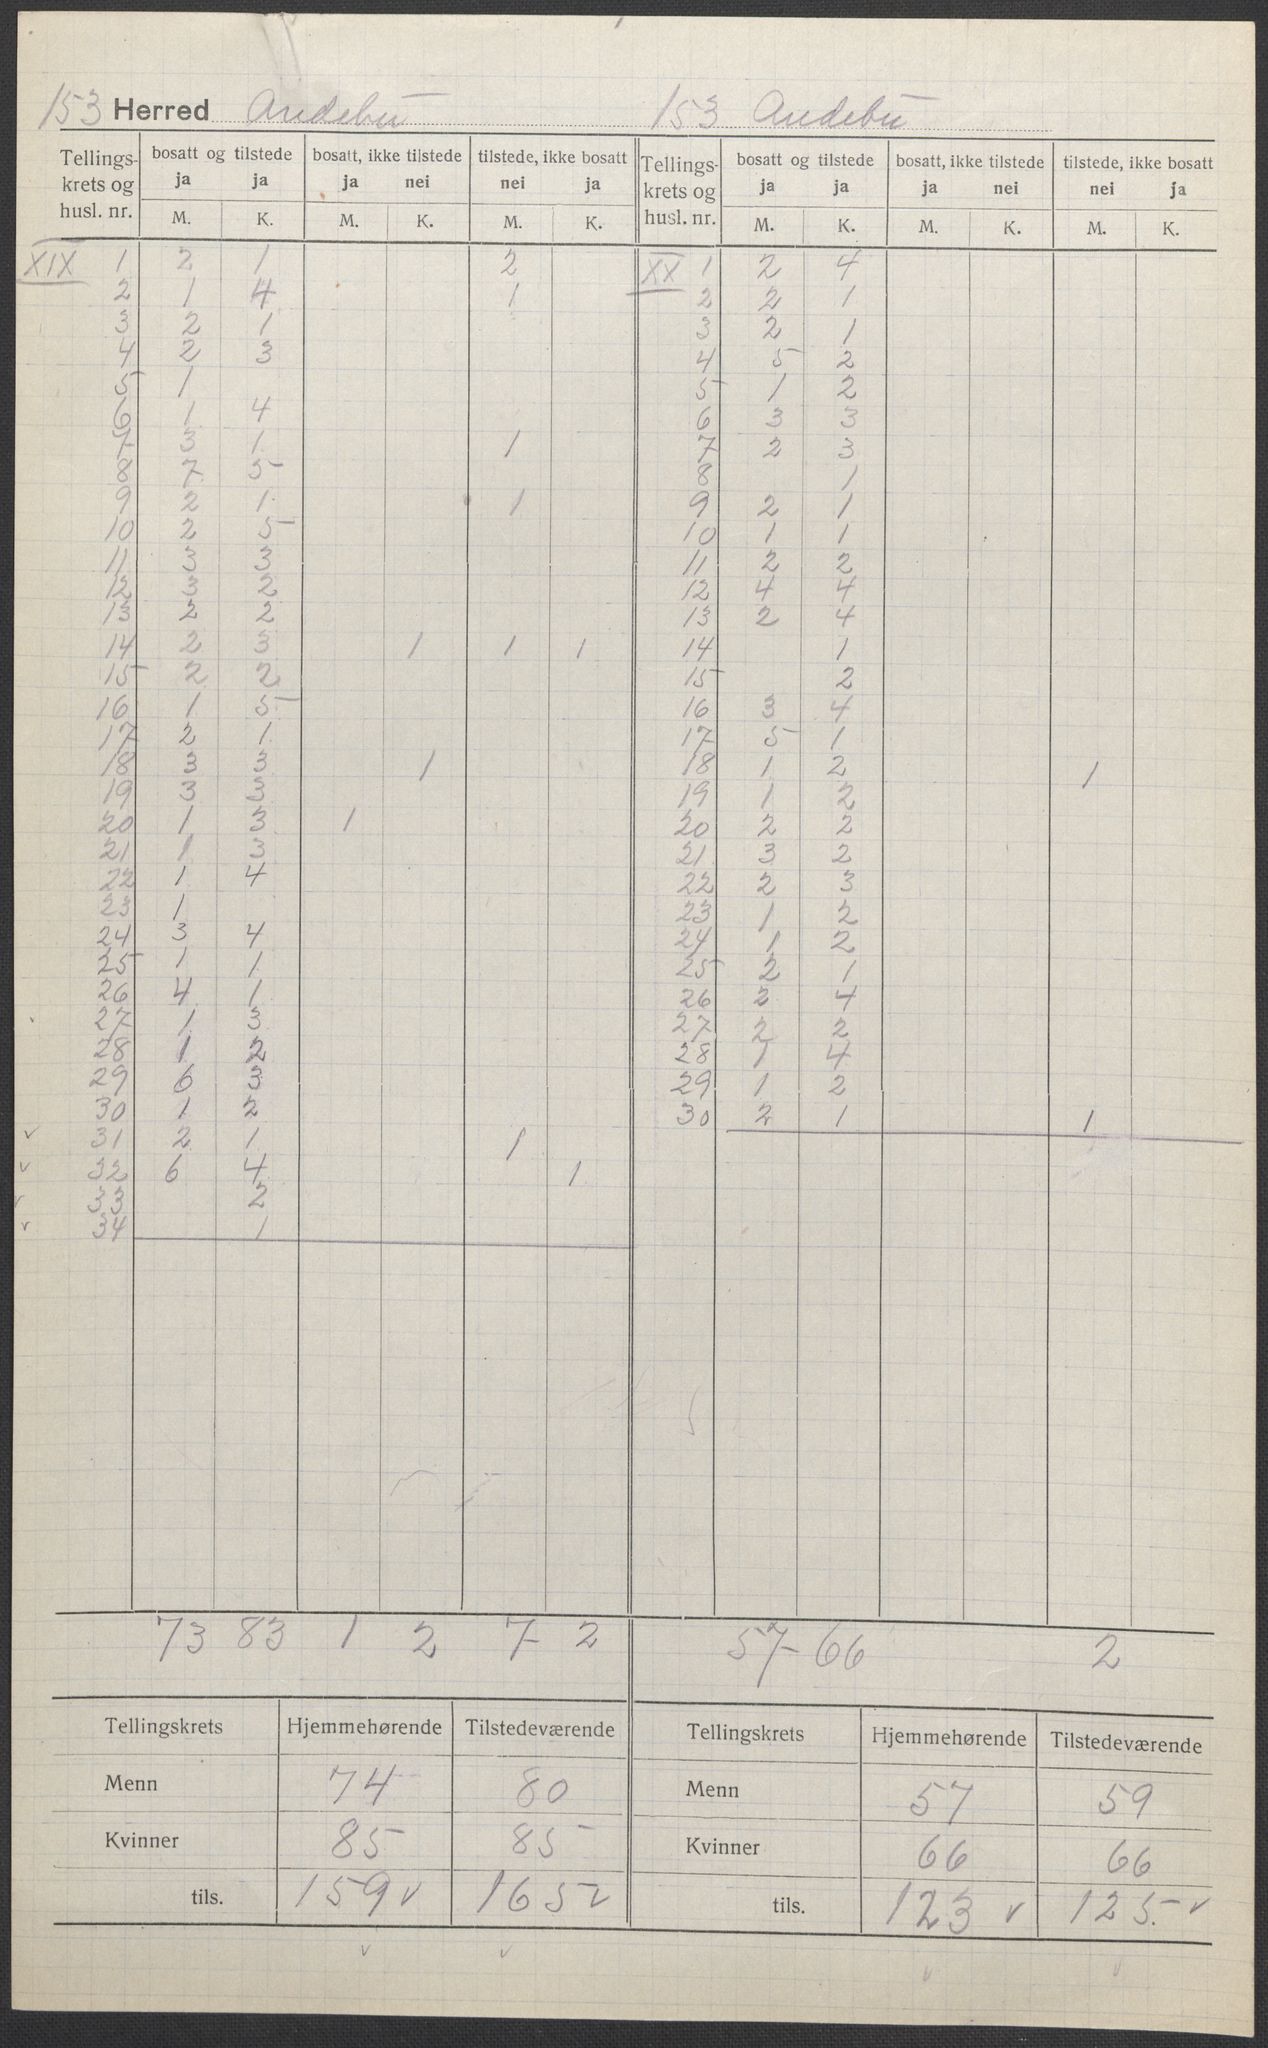 153 Herred Andebu 153 Andebu
Tellings-krets og husl. nr. bosatt og tilstede bosatt, ikke tilstede tilstede, ikke bosatt Tellings-krets og husl. nr. bosatt og tilstede bosatt, ikke tilstede tilstede, ikke bosatt
ja ja ja nei nei ja ja ja ja nei nei ja
M. K. M. K. M. K. M. K. M. K. M. K.
XIX 1 2 1 2 XX 1 2 4
2 1 4 1 2 2 1
3 2 1 3 2 1
4 2 3 4 5 2
5 1 5 1 2
6 1 4 6 3 3
7 3 1 1 7 2 3
8 7 5 8 1
9 2 1 1 9 2 1
10 2 5 10 1 1
11 3 3 11 2 2
12 3 2 12 4 4
13 2 2 13 2 4
14 2 3 1 1 1 14 1
15 2 2 15 2
16 1 5 16 3 4
17 2 1 17 5 1
18 3 3 1 18 1 2 1
19 3 3 19 1 2
20 1 3 1 20 2 2
21 1 3 21 3 2
22 1 4 22 2 3
23 1 23 1 2
24 3 4 24 1 2
25 1 1 25 2 1
26 4 1 26 2 4
27 1 3 27 2 2
28 1 2 28 1 4
29 6 3 29 1 2
30 1 2 30 2 1 1
v 31 2 1 1
v 32 6 4 1
v 33 2
v 34 1
73 83 1 2 7 2 57 66 2
Tellingskrets Hjemmehørende Tilstedeværende Tellingskrets Hjemmehørende Tilstedeværende
Menn 74 80 Menn 57 59
Kvinner 85 85 Kvinner 66 66
tils. 159 v 165 v tils. 123 v 125 v
v v v v